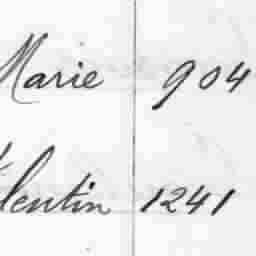 Marie 904
lentin 1241